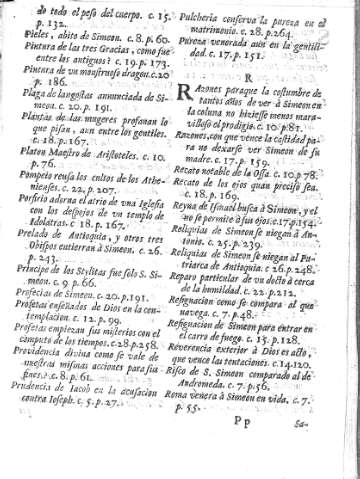 do todo el peso del cuerpo. c. 15.
p. 132.
Pieles, abito de Simeon. c. 8. p. 60.
Pintura de las tres Gracias, como fue
entre los antiguos? c. 19. p. 173.
Pintura de un monstruoso dragon. c. 20
p. 186.
Plaga de langostas anunciada de Si-
meon. c. 20. p. 191.
Plantas de las mugeres profanan lo
que pisan, aun entre los gentiles.
c. 18. p. 167.
Platon Maestro de Aristoteles. c. 10.
p. 76.
Pompeio reusa los cultos de los Athe-
nienses. c. 22. p. 207.
Porfirio adorna el atrio de una Iglesia
con los despojos de un templo de
Idolatras. c. 18. p. 167.
Prelado de Antioquia, y otros tres
Obispos entierran à Simeon. c. 26.
p. 243.
Principe de los Stylitas fue solo S. Si-
meon. c. 9. p. 66.
Profecias de Simeon. c. 20. p. 191.
Profetas enseñados de Dios en la con-
templacion. c. 12. p. 99.
Profetas empiezan sus misterios con el
computo de los tiempos. c. 28. p. 258.
Providencia divina como se vale de
nuestras mismas acciones para sus
fines. c. 8. p. 61.
Prudencia de Iacob en la acusacion
contra Ioseph. c. 5. p. 27.
Pulcheria conserva la pureza en el
matrimonio. c. 28. p. 264.
Pureza venerada aun en la gentili-
dad. c. 17. p. 151.
R
RAzones paraque la costumbre de
tantos años de ver à Simeon en
la coluna no hiziesse menos mara-
villoso el prodigio. c. 10. p. 81.
Razones, con que vence la castidad pa-
ra no dexarse ver Simeon de su
madre. c. 17. p. 159.
Recato notable de la Ossa. c. 10. p. 78.
Recato de los ojos quan preciso sea.
c. 18. p. 169.
Reyna de Ismael busca à Simeon, y el
no se permite à sus ojos. c. 17. p. 154.
Reliquias de Simeon se niegan à An-
tonio. c. 25. p. 239.
Reliquias de Simeon se niegan al Pa-
triarca de Antioquia. c. 26. p. 248.
Reparo particular de un docto à cerca
de la humildad. c. 22. p. 212.
Resignacion como se compara al que
navega. c. 7. p. 48.
Resignacion de Simeon para entrar en
el carro de fuego. c. 15. p. 128.
Reverencia exterior à Dios es acto,
que vence las tentaciones. c. 14. 120.
Risco de S. Simeon comparado al de
Andromeda. c. 7. p. 56.
Roma venera à Simeon en vida. c. 7.
p. 55.
Pp
Sa-